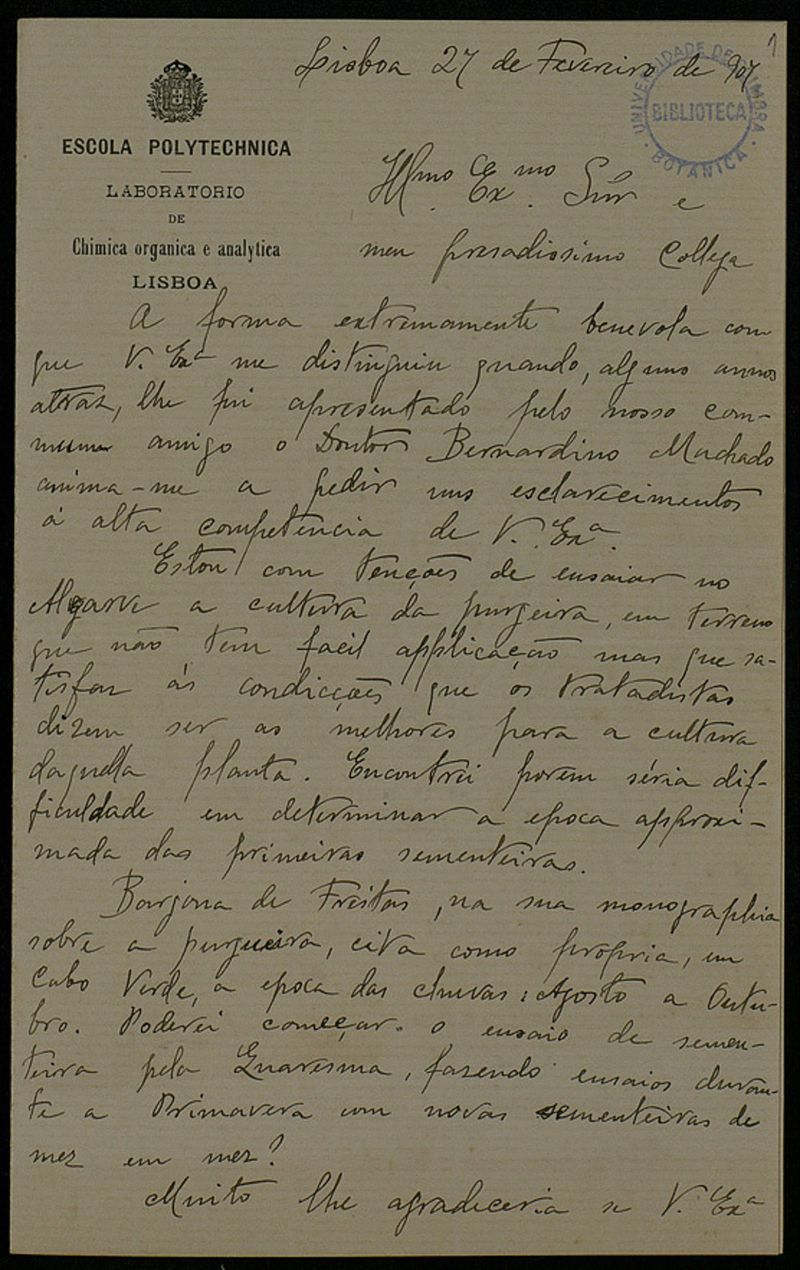 1
Lisboa 27 de Fevereiro de 907
UNIVERSIDADE DE COIMBRA
BIBLIOTECA
BOTANICA
ESCOLA POLYTECHNICA
LABORATORIO
DE
Chimica organica e analytica
LISBOA
Illmo. Exmo. Snr e
meu presadissimo Collega
A forma extremamente benevola com
que V. Exa me distinguiu quando, alguns annos
atraz, lhe fui apresentado pelo nosso com-
mum amigo o Doutor Bernardino Machado
anima-me a pedir uns esclarecimentos
á alta competencia de V. Exa.
Estou com tenções de ensaiar no
Algarve a cultura da purgeira, em terreno
que não tem facil applicação mas que sa-
tisfaz ás condicções que os tratadistas
dizem ser as melhores para a cultura
daquella planta. Encontrei porém séria dif-
ficuldade em determinar a epoca approxi-
mada das primeiras sementeiras.
Barjona de Freitas, na sua monographia
sobre a purgueira, cita como propria, em
Cabo Verde, a epoca das chuvas: Agosto a Outu-
bro. Poderei começar o ensaio de semen-
teira pela Quaresma, fazendo ensaios duran-
te a Primavera com novas sementeiras de
mez em mez?
Muito lhe agradeceria se V. Exa